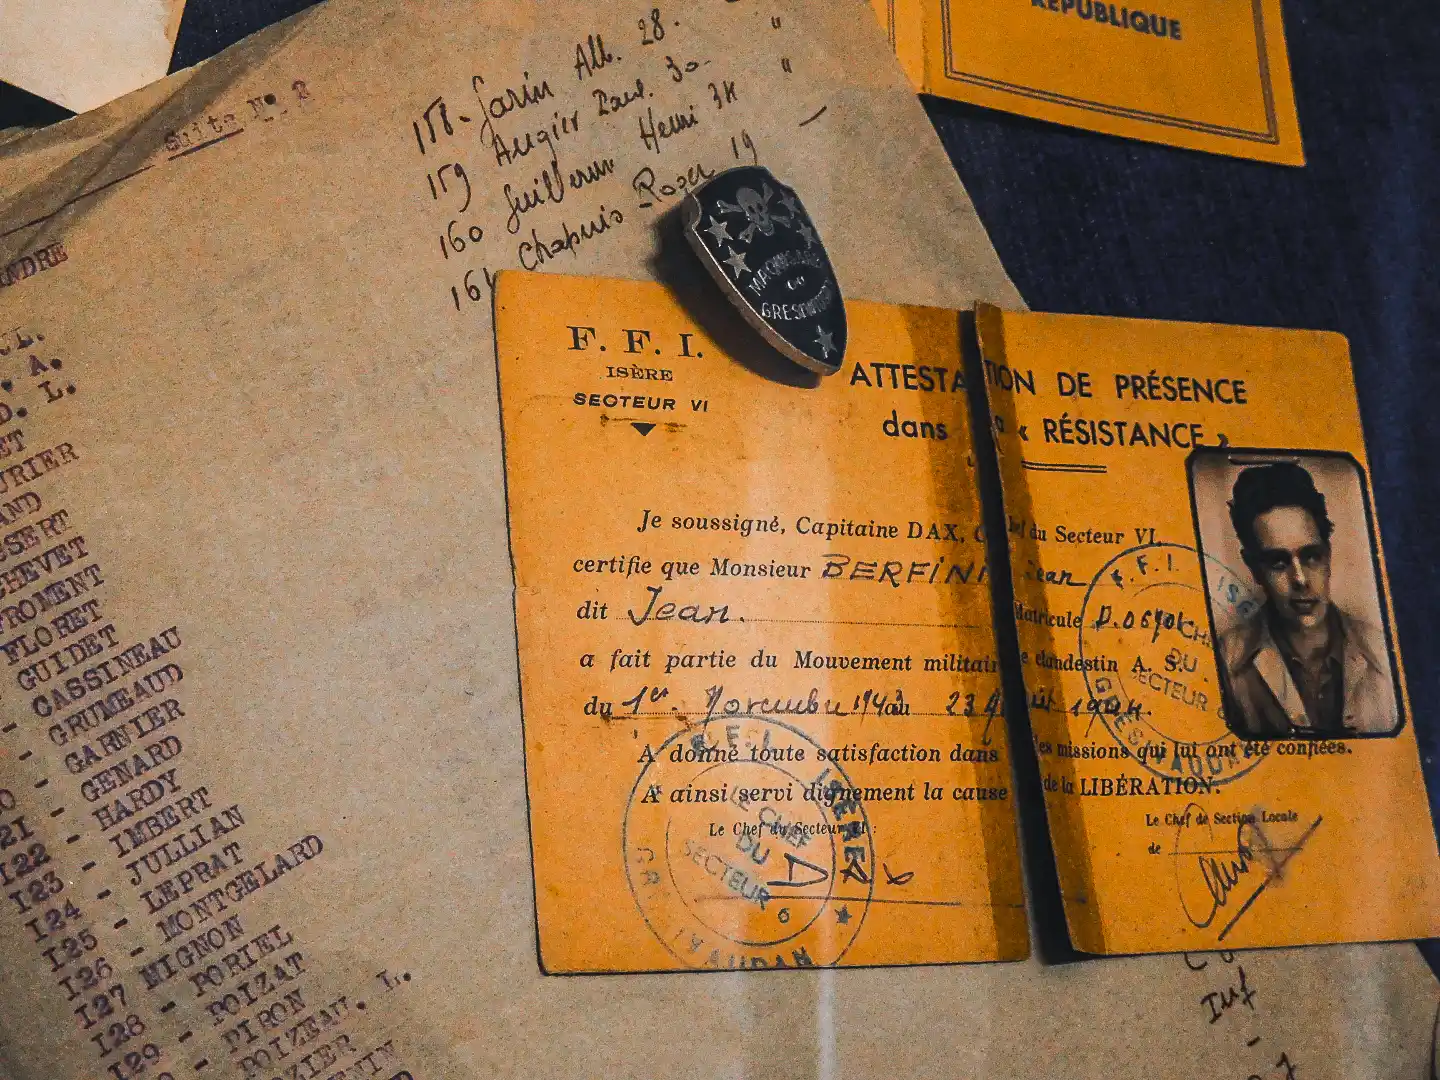 RÉPUBLIQUE
Suite N° 2
158 - Garin Alb. 28 - "
159 Augier Paul. 30 - "
160 Guillerun Henri 34
161 Chapuis Roger 19 —
MAQUISARD
DU
GRESIVAUDAN
L.
. A.
D. L.
ET
URIER
AND
SSERT
CHEVET
FROMENT
FLORET
GUIDET
- CASSINEAU
- GRUMEAUD
- GARNIER
- GENARD
I21 - HARDY
I22 - IMBERT
I23 - JULLIAN
I24 - LEPRAT
I25 - MONTGELARD
I26 - MIGNON
I27 - PORIEL
I28 - POIZAT
I29 - PIRON
POIZEAU. L.
OZIER
F. F. I.
ISÈRE
SECTEUR VI
ATTESTATION DE PRÉSENCE
dans « RÉSISTANCE »
Je soussigné, Capitaine DAX, Chef du Secteur VI,
certifie que Monsieur BERFINI Jean
dit Jean. Matricule
a fait partie du Mouvement militaire clandestin A. S.
du 1er Novembre 1943 au 23 Août 1944.
A donné toute satisfaction dans les missions qui lui ont été confiées.
A ainsi servi dignement la cause de la LIBÉRATION.
Le Chef du Secteur VI :
Le Chef de Section Locale
de
F.F.I. ISÈRE
LE CHEF
DU
SECTEUR
6
GRESIVAUDAN
F.F.I. ISÈRE
CHEF
DU
SECTEUR
GRESIVAUDAN
Inf